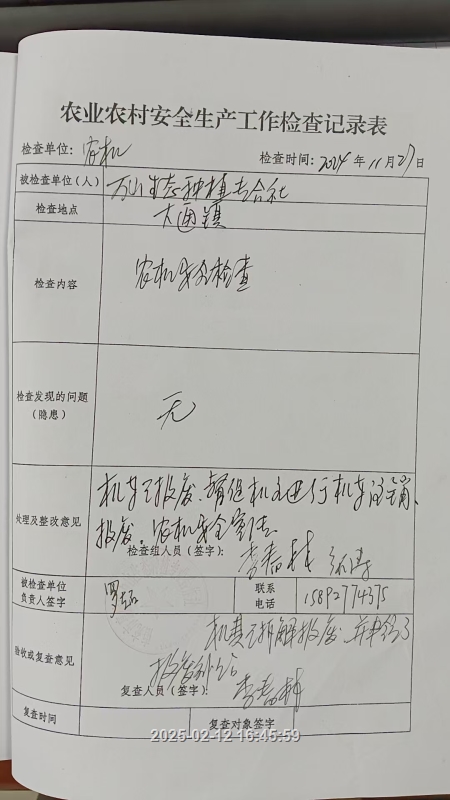 农业农村安全生产工作检查记录表
检查单位：农机 检查时间：2024年11月27日
被检查单位（人） 万山生态种植专合社
检查地点 大通镇
检查内容 农机安全检查
检查发现的问题（隐患） 无
处理及整改意见 机车已报废、督促机主进行机车注销、
报废。农机安全宣传。
检查组人员（签字）： 李春林
被检查单位负责人签字 罗 联系电话 15892774375
验收或复查意见 机具已拆解报废，并申领了
报废补贴
复查人员（签字）： 李春林
复查时间 复查对象签字
2025-02-12 16:45:59